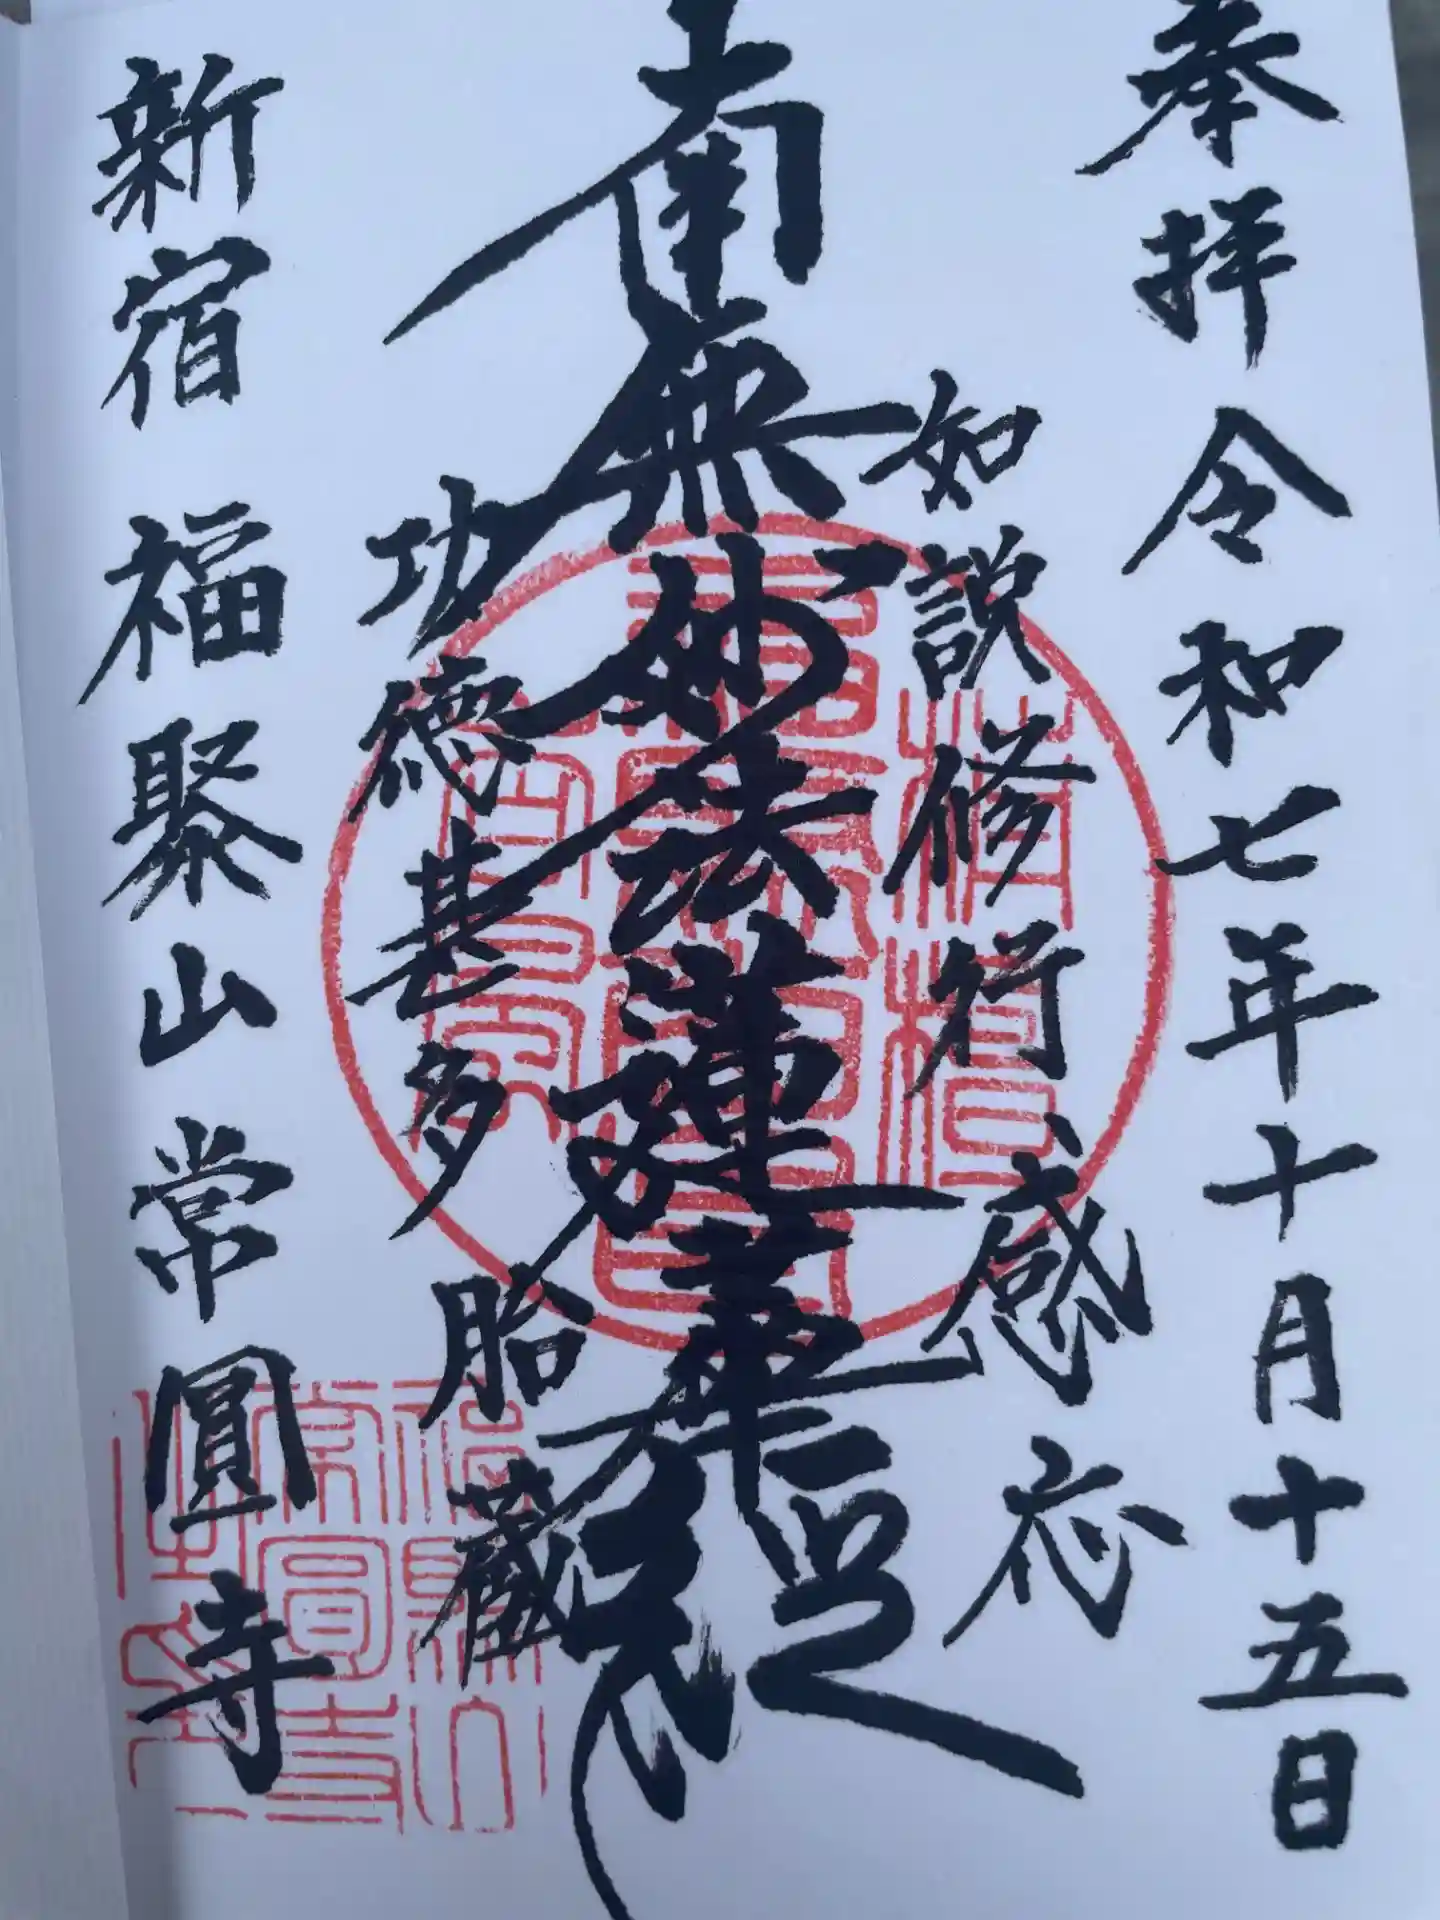 奉拝 令和七年十月十五日
如説修行 感応
南無妙法蓮華経
功徳甚多 胎蔵
新宿 福聚山 常圓寺
福聚山
常圓寺